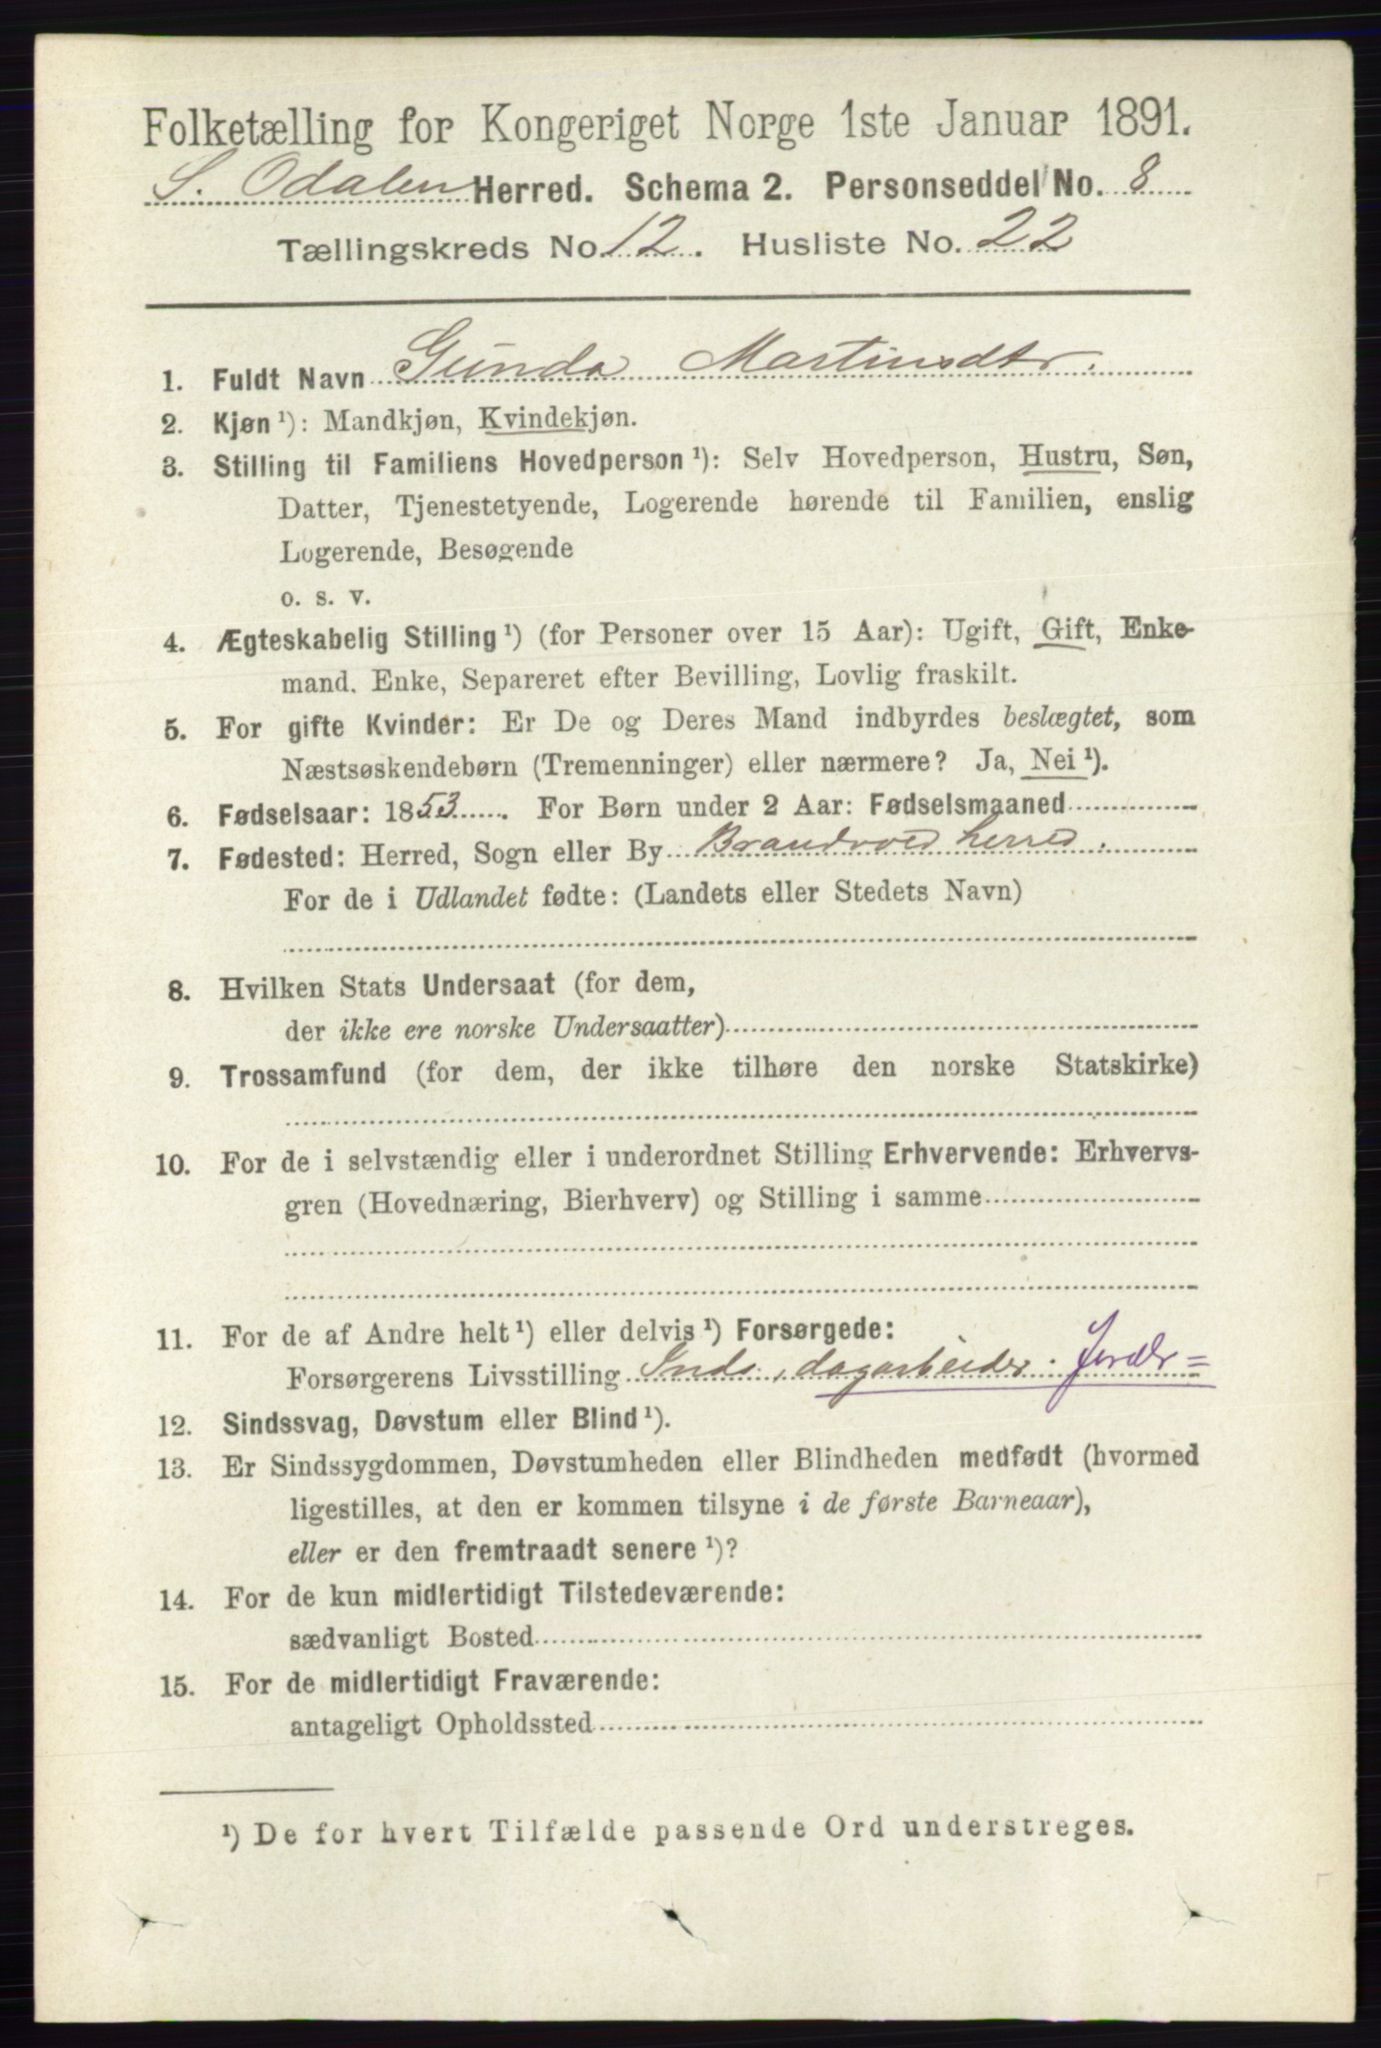 Folketælling for Kongeriget Norge 1ste Januar 1891.
S. Odalen Herred. Schema 2. Personseddel No. 8
Tællingskreds No. 12. Husliste No. 22
1. Fuldt Navn Gunda Martinsdtr.
2. Kjøn ¹): Mandkjøn, Kvindekjøn.
3. Stilling til Familiens Hovedperson ¹): Selv Hovedperson, Hustru, Søn,
Datter, Tjenestetyende, Logerende hørende til Familien, enslig
Logerende, Besøgende
o. s. v.
4. Ægteskabelig Stilling ¹) (for Personer over 15 Aar): Ugift, Gift, Enke-
mand. Enke, Separeret efter Bevilling, Lovlig fraskilt.
5. For gifte Kvinder: Er De og Deres Mand indbyrdes beslægtet, som
Næstsøskendebørn (Tremenninger) eller nærmere? Ja, Nei ¹).
6. Fødselsaar: 1853. For Børn under 2 Aar: Fødselsmaaned
7. Fødested: Herred, Sogn eller By Brandvold herred.
For de i Udlandet fødte: (Landets eller Stedets Navn)
8. Hvilken Stats Undersaat (for dem,
der ikke ere norske Undersaatter)
9. Trossamfund (for dem, der ikke tilhøre den norske Statskirke)
10. For de i selvstændig eller i underordnet Stilling Erhvervende: Erhvervs-
gren (Hovednæring, Bierhverv) og Stilling i samme
11. For de af Andre helt ¹) eller delvis ¹) Forsørgede:
Forsørgerens Livsstilling Inds. dagarbeider.
12. Sindssvag, Døvstum eller Blind ¹).
13. Er Sindssygdommen, Døvstumheden eller Blindheden medfødt (hvormed
ligestilles, at den er kommen tilsyne i de første Barneaar),
eller er den fremtraadt senere ¹)?
14. For de kun midlertidigt Tilstedeværende:
sædvanligt Bosted
15. For de midlertidigt Fraværende:
antageligt Opholdssted
¹) De for hvert Tilfælde passende Ord understreges.